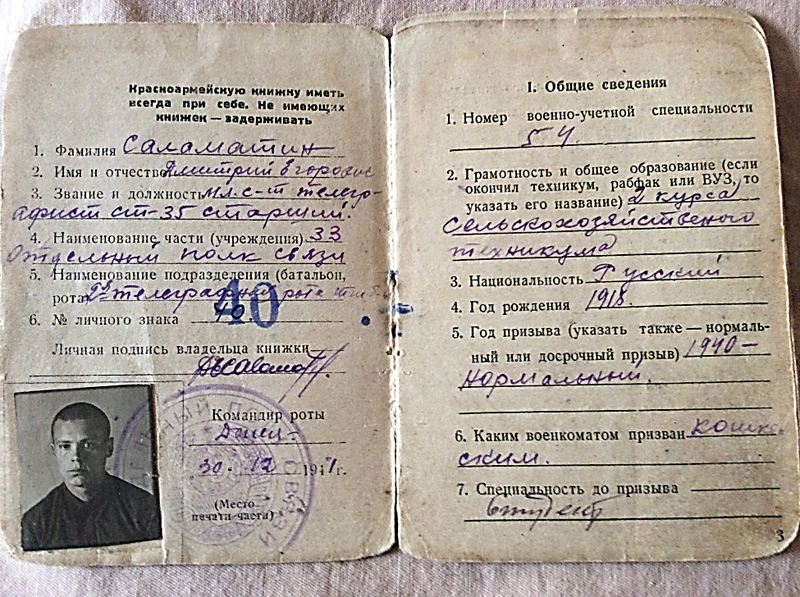 Красноармейскую книжку иметь
всегда при себе. Не имеющих
книжек — задерживать
1. Фамилия Саламатин
2. Имя и отчество Дмитрий Егорович
3. Звание и должность мл. с-т телегр-
афист ст-35 старший.
4. Наименование части (учреждения) 33
Отдельный полк связи
5. Наименование подразделения (батальон,
рота) телеграфная рота
6. № личного знака 40
Личная подпись владельца книжки
Командир роты
30 - 12 1941 г.
(Место
печати части)
СВЯЗИ
I. Общие сведения
1. Номер военно-учетной специальности
54
2. Грамотность и общее образование (если
окончил техникум, рабфак или ВУЗ, то
указать его название) 2 курса
Сельскохозяйственного
техникума
3. Национальность Русский
4. Год рождения 1918.
5. Год призыва (указать также — нормаль-
ный или досрочный призыв) 1940 —
нормальный.
6. Каким военкоматом призван Кошкин
ским.
7. Специальность до призыва
студент
3